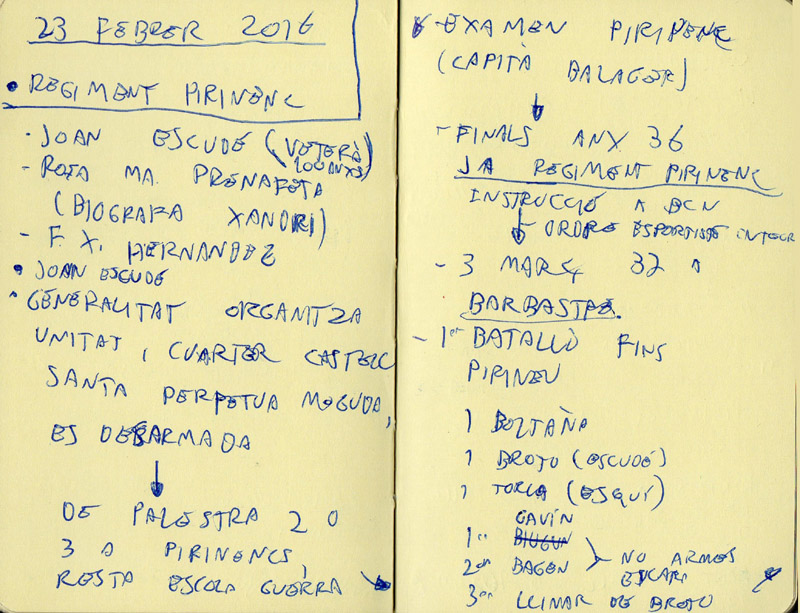 23 FEBRER 2016
• REGIMENT PIRINENC
- JOAN ESCUDÉ (VETERÀ
100 ANYS)
- ROSA MA. PRENAFETA
(BIOGRAFA XANDRI)
- F. X. HERNANDEZ
• JOAN ESCUDÉ
• GENERALITAT ORGANITZA
UNITAT, CUARTER CASTELL
SANTA PERPETUA MOGUDA,
ES DESARMADA
↓
DE PALESTRA 2 O
3 A PIRINENCS,
RESTA ESCOLA GUERRA
EXAMEN PIRINENC
(CAPITÀ BALAGER)
↓
- FINALS ANY 36
JA REGIMENT PIRINENC
INSTRUCCIÓ A BCN
↓ - ORDRE ESPORTISTES
- 3 MARÇ 37 A
BARBASTRE.
- 1er BATALLÓ FINS
PIRINEU
1 BOLTAÑA
1 BROTO (ESCUDÉ)
1 TORLA (ESQUÍ)
GAVÍN
1er
2on
NO ARMES
3er LLINAR DE BROTO